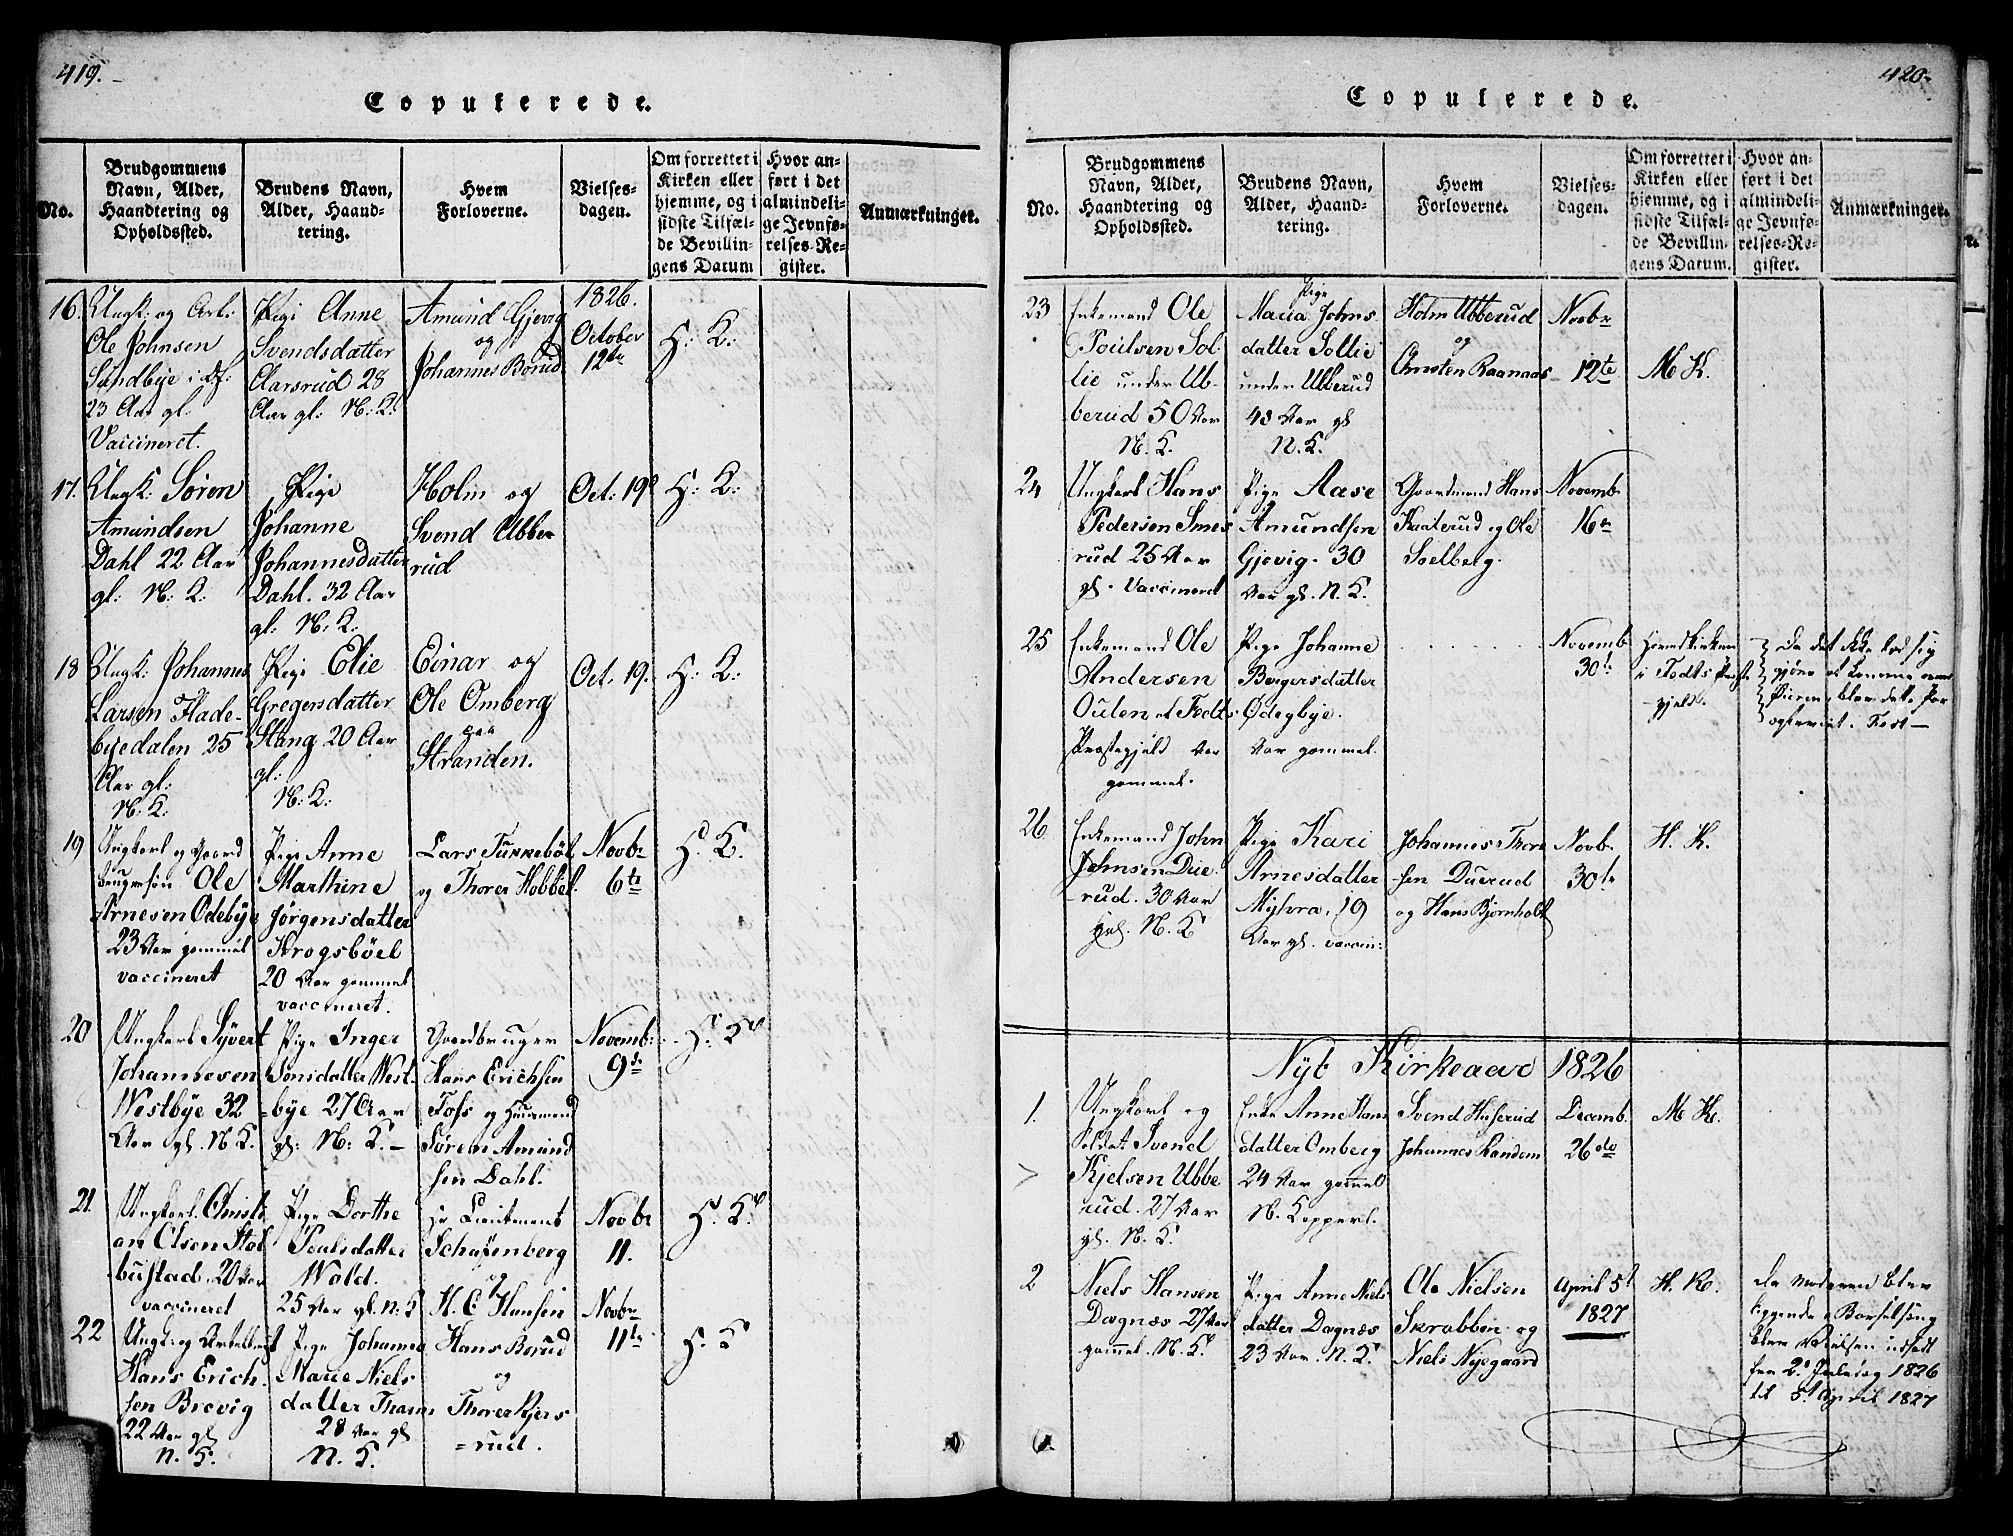 419.
Copulerede.
No.
Brudgommens
Navn, Alder,
Haandtering og
Opholdssted.
Brudens Navn,
Alder, Haand-
tering.
Hvem
Forloverne.
Vielses-
dagen.
Om forrettet i
Kirken eller
hjemme, og i
sidste Tilfæl-
de Bevillin-
gens Datum
Hvor an-
ført i det
almindeli-
ge Jevnfø-
relses-Re-
gister.
Anmærkninger.
16.
Ungk: og
Ole Johnsen
Sundbye
23 Aar gl.
Vaccineret.
Pige Anne
Svendsdatter
Aarsrud 28
Aar gl: N: K:
Amund Gjevig
og
Johannes Borud
1826.
October
12te
H: K:
17.
Ungk: Søren
Amundsen
Dahl 22 Aar
gl: N: K:
Pige
Johanne
Johannesdatter
Dahl. 32 Aar
gl: N: K:
Holm og
Svend Ubbe-
rud
Oct: 19
H: K:
18
Ungk: Johannes
Larsen Flade-
byedalen 25
Aar gl:
N: K:
Pige Elie
Gregersdatter
Slang 20 Aar
gl:
N: K:
Einar og
Ole Omberg
paa
Stranden.
Oct. 19.
H: K:
19
Ungkarl og Gaard
brugersøn Ole
Arnesen Ødebye
23 Aar gammel
vaccineret
Pige Anne
Marthine
Jørgensdatter
Krogsbøel
20 Aar gammel
vaccineret.
Lars Tukkebøl
og Thorer Hobbel.
Novbr
6te
H. K.
20
Ungkarl Syvert
Johannesen
Westbye 32
Aar gl. N. K.
Pige Inger
Jonsdatter West-
bye 27 Aar
gl: N: K. –
Gaardbruger
Hans Erichsen
Foss og Huusmand
Søren Amund
sen Dahl.
Novemb:
9de
H. K.
21
Ungkarl. Christi
an Olsen Stol
bustad. 20 Aar
vaccineret
Pige Dorthe
Poulsdatter
Wold.
25 Aar gl. N: K
Hr Lieutenant
Scharfenberg
og
H. C Hansen
Novbr
11.
H. K.
22
Ungk: og
Hans Erich-
sen Brevig
22 Aar gl
N. K.
Pige Johanna
Marie Niels
datter Tharm
28 Aar gl
N. K.
Hans Borud
og
Thorer Kjers
=rud.
Novbr
11te
H. K
420.
Copulerede.
No.
Brudgommens
Navn, Alder,
Haandtering og
Opholdssted.
Brudens Navn,
Alder, Haand-
tering.
Hvem
Forloverne.
Vielses-
dagen.
Om forrettet i
Kirken eller
hjemme, og i
sidste Tilfæl-
de Bevillin-
gens Datum.
Hvor an-
ført i det
almindeli-
ge Jevnfø-
relses-Re-
gister.
Anmærkninger.
23
Enkemand Ole
Poulsen Sol
lie under Ub-
berud 50 Aar
N. K.
Pige
Maria Johns
datter Sollie
under Ubberud
48 Aar gl
N. K.
Holm Ubberud
og
Christen Raanaas
Novbr
12te
M K.
24
Ungkarl Hans
Pedersen Smes
rud 25 Aar
gl. Vaccineret
Pige Aase
Amundsen
Gjevig. 30
Aar gl. N. K.
Gaardmand Hans
Kaaterud og Ole
Soelberg.
Novemb
16
25
Enkemand Ole
Andersen
Oulen af Fedts
Præstegjeld Aar
gammel.
Pige Johanne
Borgersdatter
Ødegbye.
Aar gammel.
Novemb
30te
Hovedkirken
i Fedts Præste
gjeld.
Da det ikke lod sig
gjøre at komme over
26
Enkemand John
Johnsen Due
rud. 30 Aar
gl. N. K
Pige Kari
Arnesdatter
Myhra. 19
Aar gl. vaccin:
Johannes Thor
sen Duerud
og Hans Bjørnholt
Novb.
30te
H. K.
Nyt Kirkeaar 1826
1.
Ungkarl og
Soldat Svend
Kjelsen Ubbe
rud. 27 Aar
gl. N. K.
Enke Anne Hans
datter Omberg
24 Aar gammel
N. Kopperl.
Svend Huserud
Johannes Randem
Decemb.
26de
M K.
2
Niels Hansen
Dagnæs 27 Aar
gammel. N. K.
Pige Anne Niels
datter Dagnæs
23 Aar. N. K.
Ole Nielsen
Skrabben og
Niels Nysgaard
April 5t
1827
H. K.
Da Moderen blev
liggende i Barselseng
blev Vielsen udsatt
fra 2. Juledag 1826
til 5t April 1827